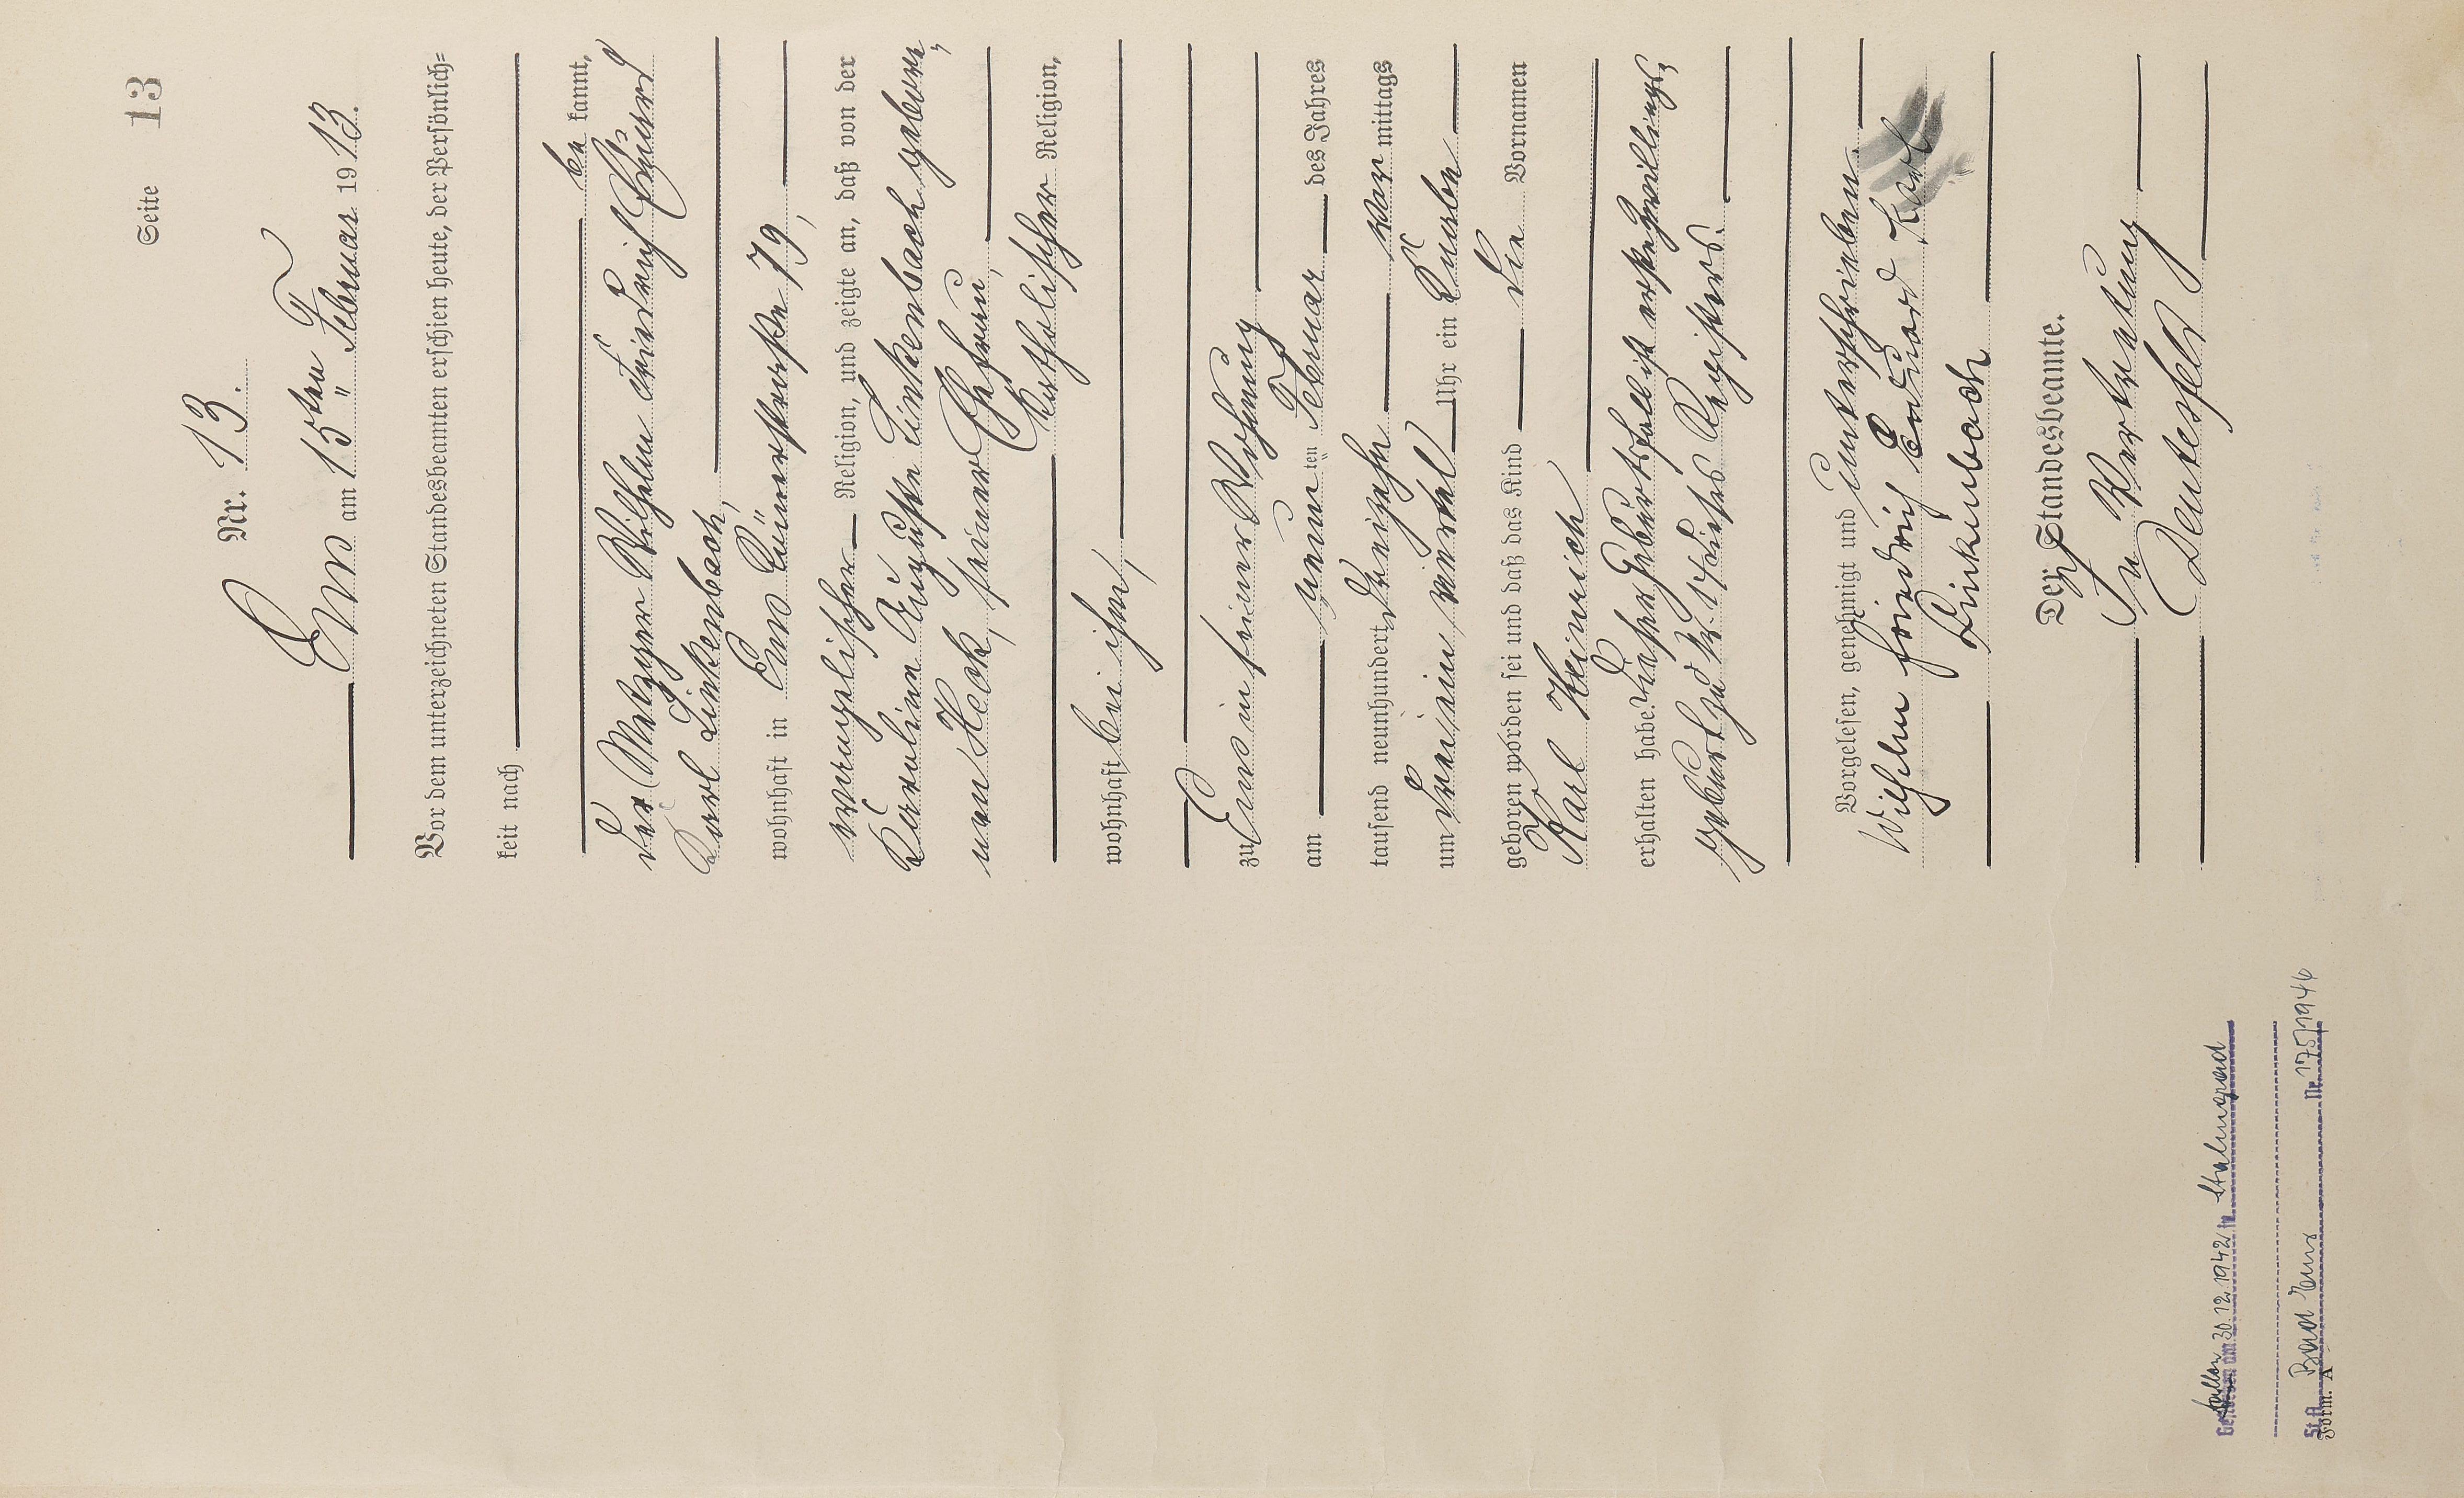 Seite 13
Nr. 13.
Ems am 15ten Februar 1913.
Vor dem unterzeichneten Standesbeamten erschien heute, der Persönlich=
keit nach
be kannt,
der Metzger Wilhelm Friedrich Eduard
Karl Linkenbach,
wohnhaft in Ems Römerstraße 79,
evangelischer Religion, und zeigte an, daß von der
Karoline Auguste Linkenbach geborene,
Heck, seiner Ehefrau,
katholischer Religion,
wohnhaft bei ihm,
zu Ems in seiner Wohnung
am neunten Februar des Jahres
tausend neunhundert dreizehn vor mittags
um drei ein viertel Uhr ein Knabe
geboren worden sei und daß das Kind die Vornamen
Karl Heinrich
erhalten habe. Dieser Geburtsfall ist erste Zwillings,
geburt zu Nr. 14 dieses Registers.
Vorgelesen, genehmigt und unterschrieben.
Wilhelm Friedrich Eduard Karl
Linkenbach
Der Standesbeamte.
In Vertretung
gefallen am 30.12.1942 in Stalingrad
St.A. Bad Ems Nr. 175/1944
Form. A